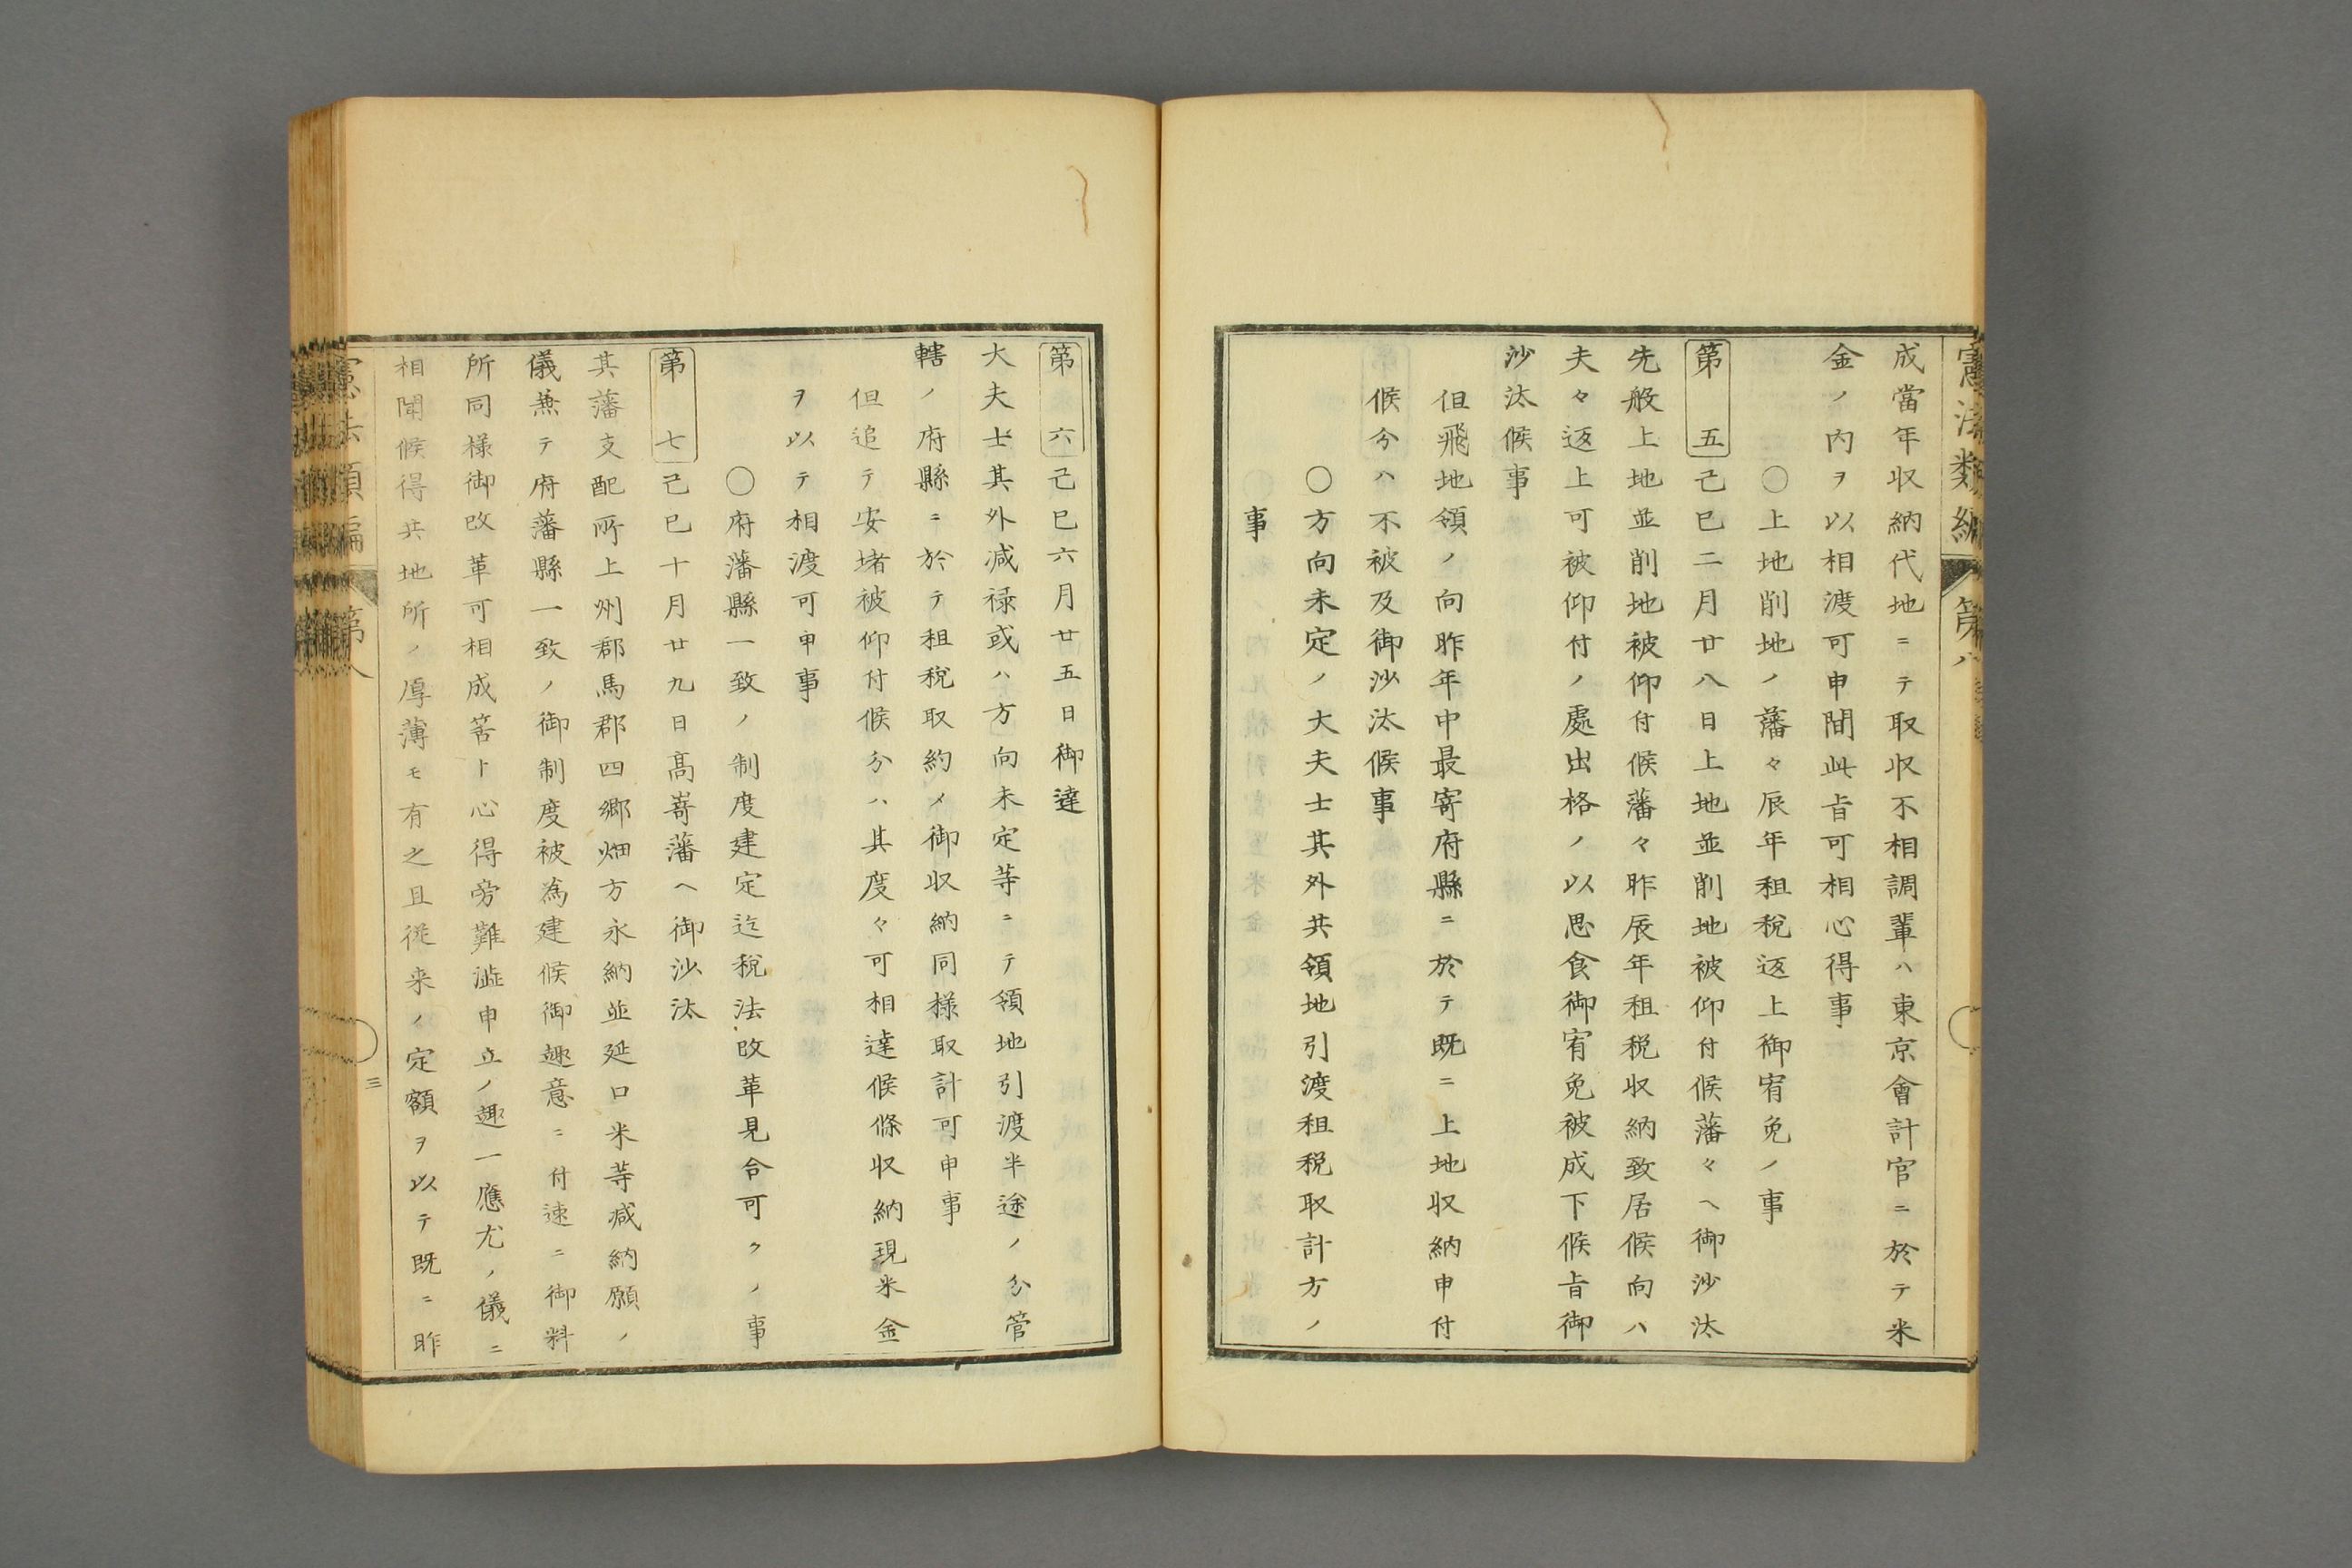 憲法類編 第八
成當年収納代地ニテ取収不相調輩ハ東京會計官ニ於テ米
金ノ内ヲ以相渡可申間此旨可相心得事
〇上地削地ノ藩々辰年租税返上御宥免ノ事
第五 己巳二月廿八日上地並削地被仰付候藩々ヘ御沙汰
先般上地並削地被仰付候藩々昨辰年租税収納致居候向ハ
夫々返上可被仰付ノ處出格ノ以思食御宥免被成下候旨御
沙汰候事
但飛地領ノ向昨年中最寄府縣ニ於テ既ニ上地収納申付
候分ハ不被及御沙汰候事
〇方向未定ノ大夫士其外共領地引渡租税取計方ノ
事
第六 己巳六月廿五日御達
大夫士其外減禄或ハ方向未定等ニテ領地引渡半途ノ分管
轄ノ府縣ニ於テ租税取約メ御収納同様取計可申事
但追テ安堵被仰付候分ハ其度々可相達候條収納現米金
ヲ以テ相渡可申事
〇府藩縣一致ノ制度建定迄税法改革見合可クノ事
第七 己巳十月廿九日高嵜藩ヘ御沙汰
其藩支配所上州郡馬郡四郷畑方永納並延口米等減納願ノ
儀兼テ府藩縣一致ノ御制度被為建候御趣意ニ付速ニ御料
所同様御改革可相成筈ト心得旁難澁申立ノ趣一應尤ノ儀ニ
相聞候得共地所ノ厚薄モ有之且従来ノ定額ヲ以テ既ニ昨
憲法類編 第八
三